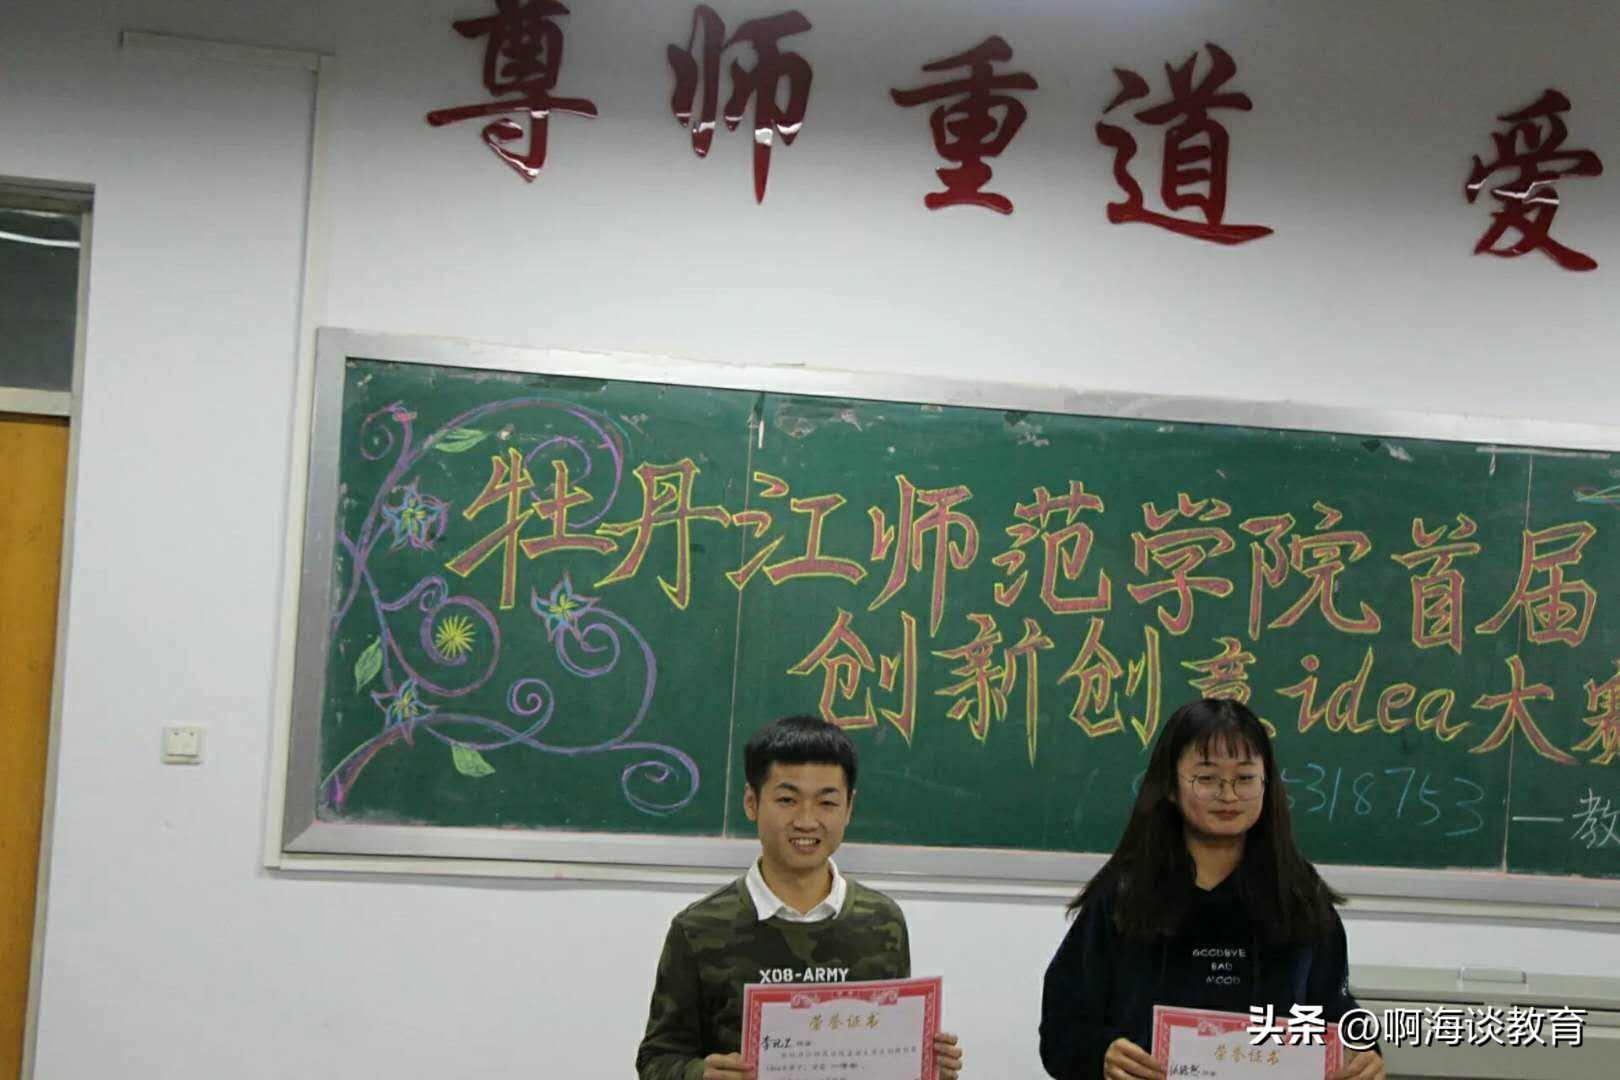 尊师重道 爱
牡丹江师范学院首届
创新创意idea大赛
5318753
一教
X08-ARMY
荣誉证书
GOODBYE
BAD
MOOD
荣誉证书
头条 @啊海谈教育